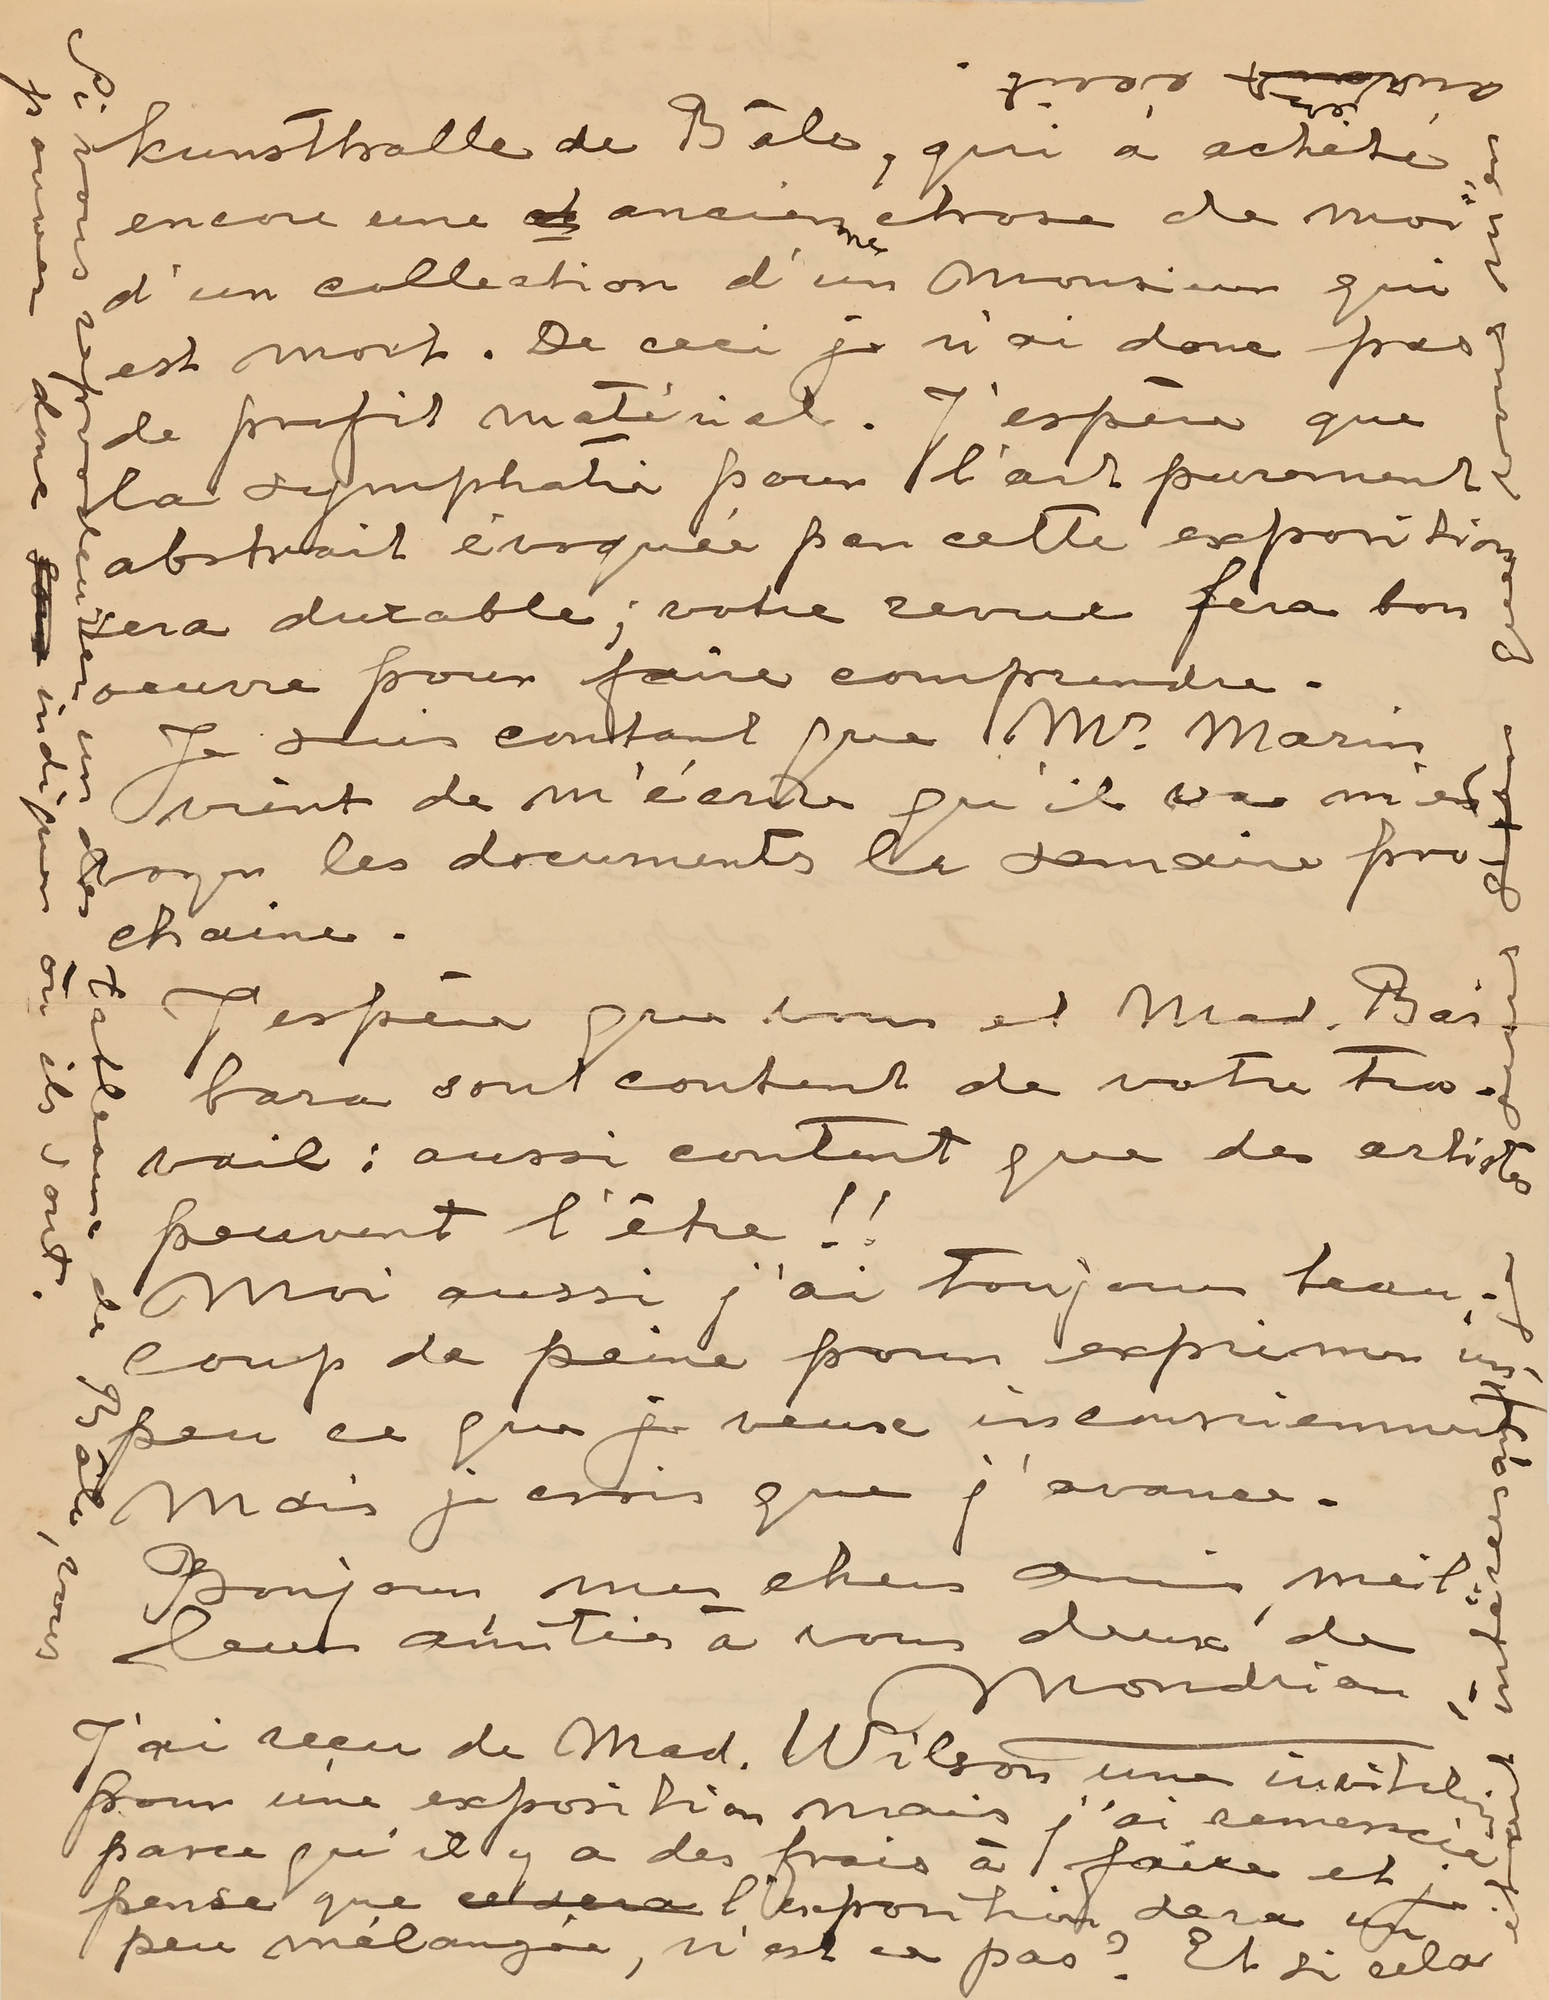 kunsthalle de Bâle, qui à acheté
encore une ancienne chose de moi
d'un collection d'un Monsieur qui
est mort. De ceci je n'ai donc pas
de profit matérial. J'espère que
la symphatie pour l'art purement
abstrait évoquée par cette exposition
sera durable; votre revue fera bon
oeuvre pour faire comprendre.
Je suis contant que Mr. Marin
vient de m'écrire qu'il va m'en
voyer les documents la semaine pro
chaine.
J'espère que vous et Mad. Bai
bara sont content de votre tra-
vail: aussi content que des artistes
peuvent l'être!!
Moi aussi j'ai toujours beau-
coup de peine pour exprimer un
peu ce que je veux inconsciemment
Mais je crois que j'avance.
Bonjour mes chers amis, meil
leurs amitiés à vous deux, de
Mondrian
J'ai reçu de Mad. Wilson une invitation
pour une exposition mais j'ai remercié
parce qu'il y a des frais à faire et je
pense que ce sera l'exposition sera un
peu mélangée, n'est ce pas? Et si cela
était intéressant,
je suis que vous
en
écrit.
Si vous reproduiser un des tableaux de Bâle, vous
pouver donc indiquer où ils sont.